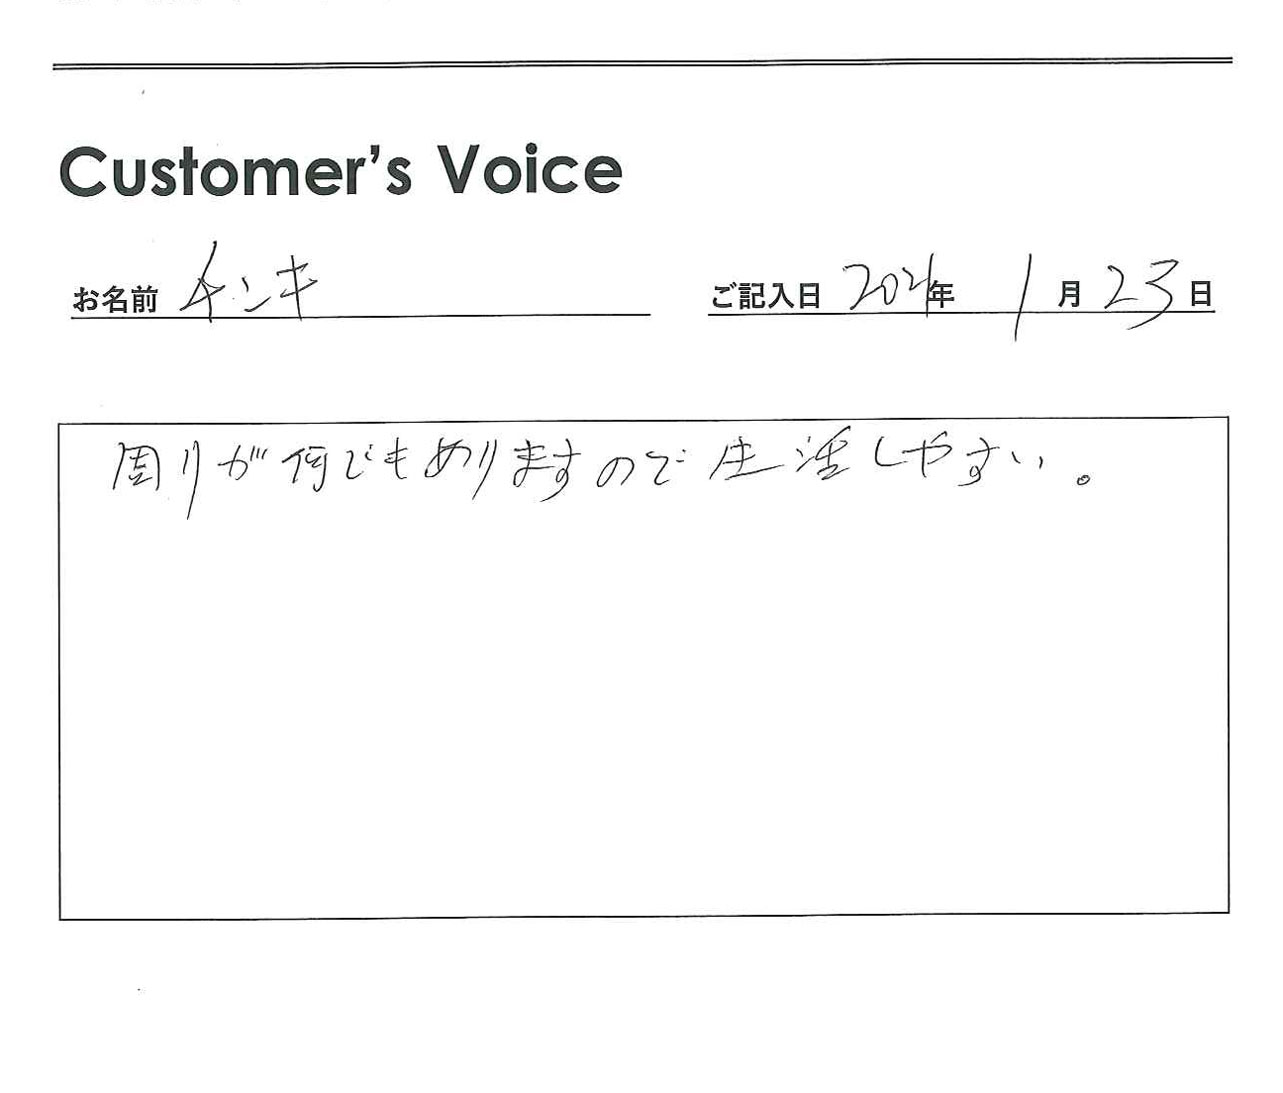 Customer's Voice
お名前 チンキ
ご記入日 2021年 1月 23日
周りが何でもありますので生活しやすい。